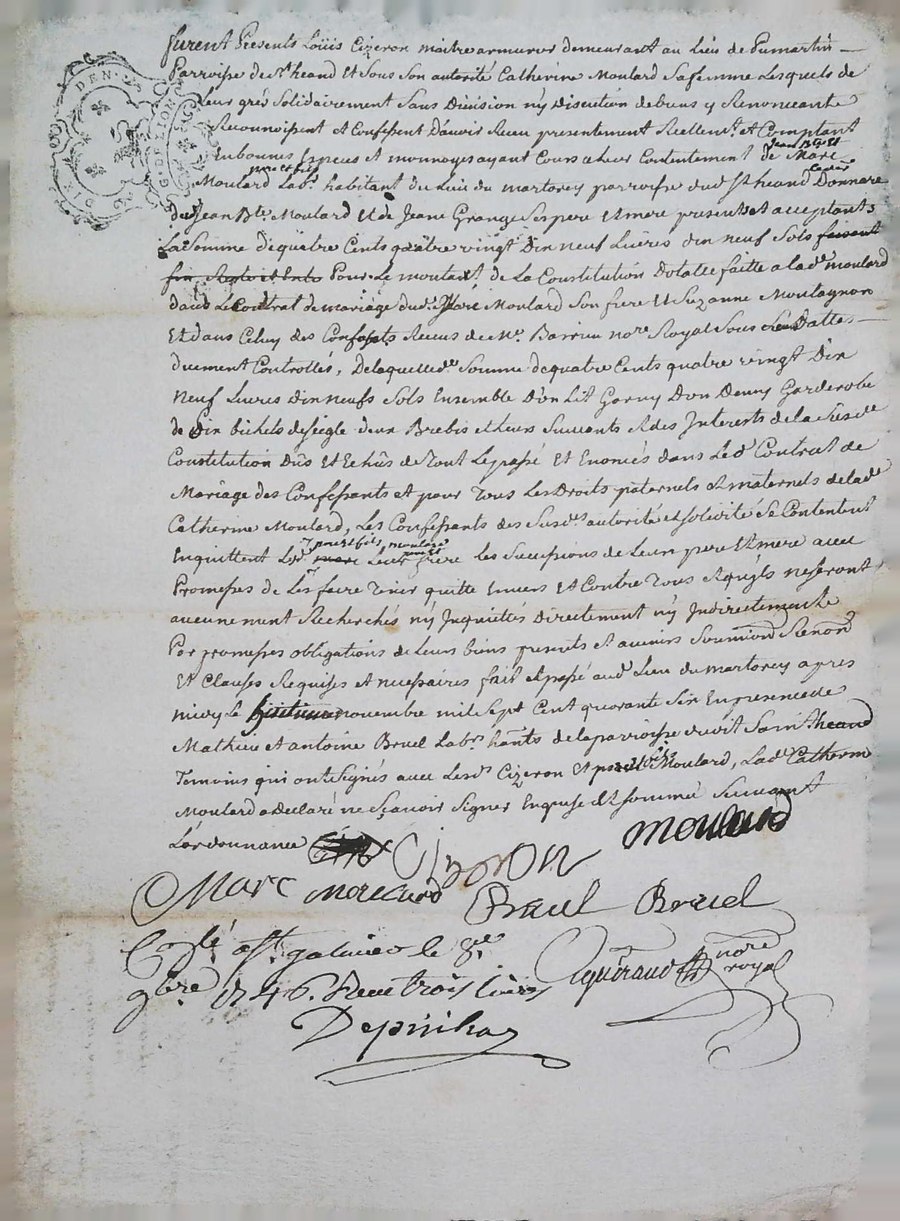 DEN.
G. DE LION
furent Presents Loüis Cizeron maitre armurier demeurant au Lieu de Pumartin
Parroisse de st heand Et Sous Son autorité Catherine Moulard Safemme Lesquels de
Leur gré Solidairement Sans Division ny Discution debiens y Renonceants
Reconnoissent et Confessent D'avoir Receu presentement Reellemt. et Comptant
Enbonnes Especes et monnoyes ayant Cours a Leur Contentement de Marc
Jean Bte Et
Moulard Labr. habitant du Lieu du martorey parroisse dud. St heand Donnare
pere et fils
dud Jean Bte. Moulard Et de Jeane Grange Ses pere Et mere presents et acceptants
La Somme de quatre Cents quatre vingt Dix neuf Livres dix neuf Sols faisant
fin Reste et Pour Le montant de La Constitution Dotalle faitte a lade. moulard
dans Le Contrat de mariage dud. Marc Moulard Son frere Et Suzanne Montagnon
Et dans Celuy des Confessants Receus de Me. nore. Royal Sous Leurs Dattes
duement Controllés, De laquelle de. Somme de quatre Cents quatre vingt Dix
neuf Livres Dix neufs Sols Ensemble D'un Lit Garny Don Denny Garderobe
de Dix bichets de seigle deux Brebis et Leurs Suivants et des Interests de la Susde
Constitution Dûs Et Echûs de Tout Le passé Et Enoncés dans Led. Contrat de
Mariage des Confessants et pour Tous Les Droits paternels et maternels de lade
Catherine Moulard, Les Confessants des Susds. autorité et solidité Se Contentent
Enquittent Lesd. marc Leur frere les Successions de Leurs pere Et mere avec
pere et fils moulard
Promesses de Les faire Tenir quitte Envers Et Contre Tous Et qu'ils ne seront
aucunement Recherchés ny Inquietés Directement ny Indirectement
Par promesses obligations de Leurs biens presents et avenirs Soumions Renons
Et Clauses Requises et necessaires fait Et passé aud. Lieu du martorey apres
midy Le novembre mil Sept Cent quarante Six En presence de
Mathieu et antoine Bruel Labrs. hants de la parroisse dudit Saint heand
Temoins qui ont Signés avec Lesds. Cizeron Et pere et fils Moulard, Lade. Catherine
Moulard a Declaré ne Sçavoir Signer Enquise Et sommée Suivant
L'ordonnance
Cizeron
moulard
Marc moulard
Bruel Bruel
Conlé a st. galmier le 8e
9bre 1746. Receu trois livres
nore royal